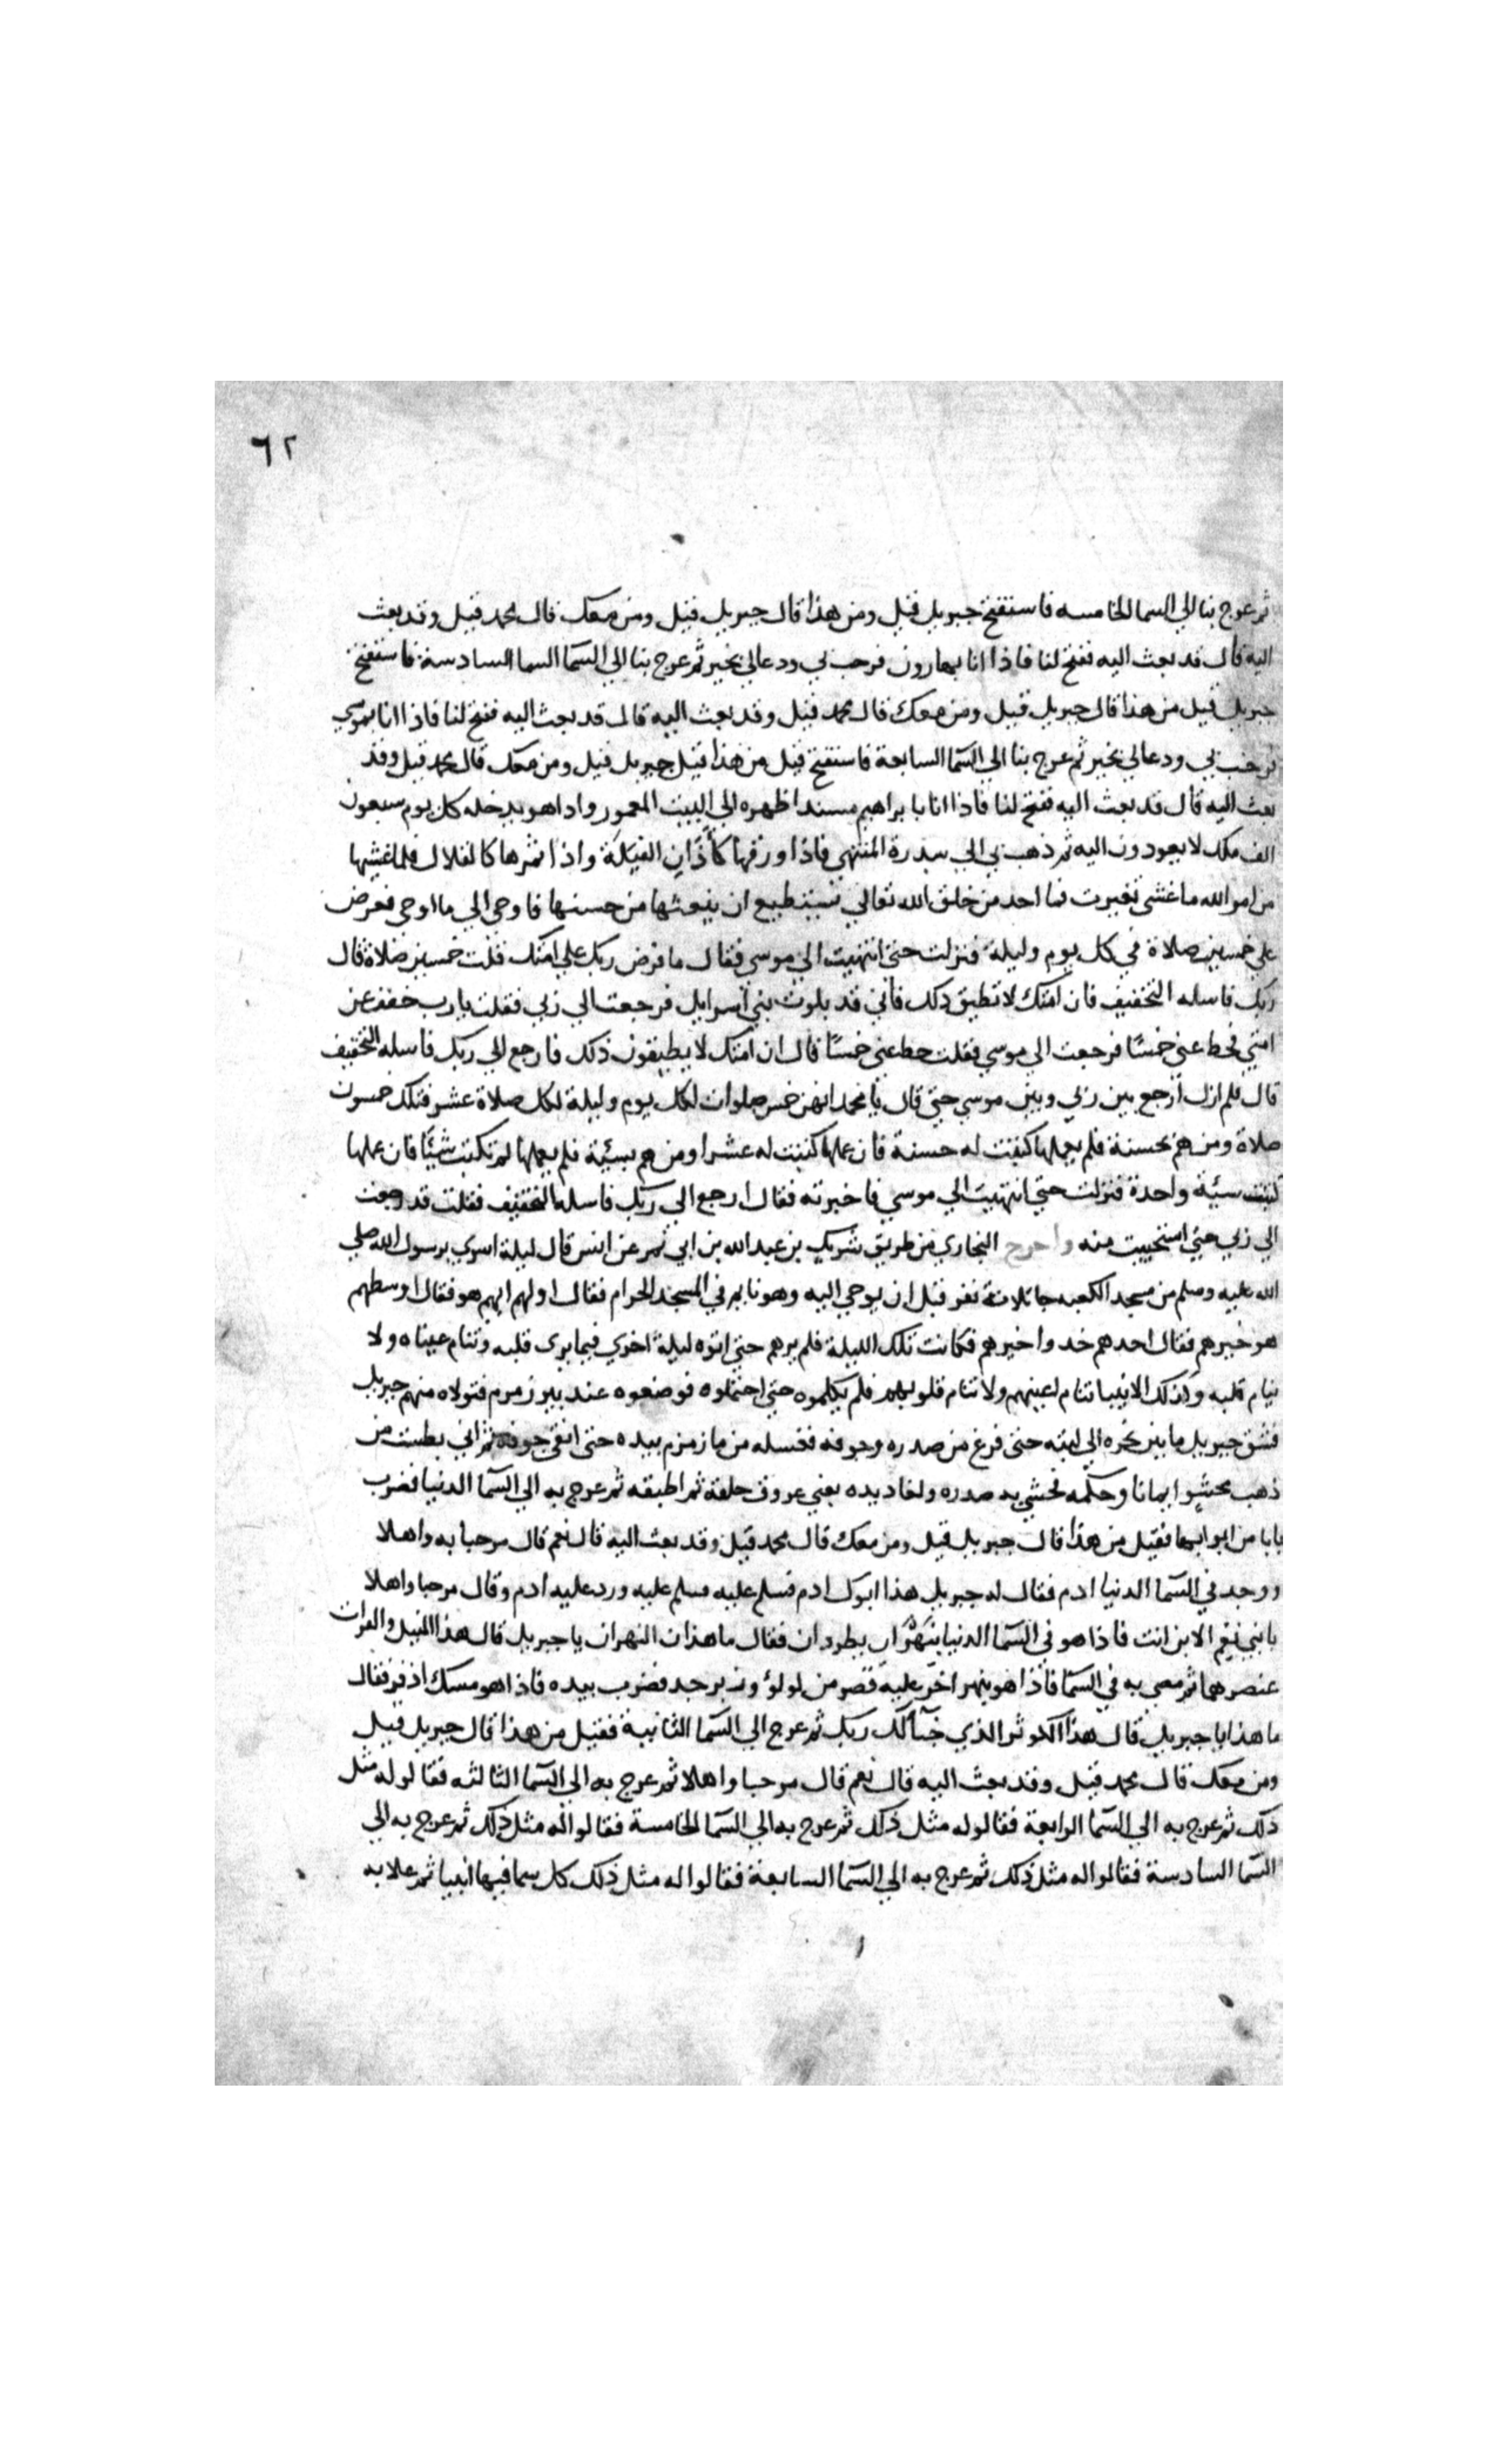 ٦٢
ثم عرج بنا الي السما الخامسه فاستفتح جبريل قيل ومن هذا قال جبريل قيل ومن معك قال محمد قيل وقد بعث
اليه قال قد بعث اليه ففتح لنا فاذا انا بهارون فرحب بي ودعا لي بخير ثم عرج بنا الي السّما السما السادسة فاستفتح
جبريل قيل من هذا قال جبريل قيل ومن معك قال محمد قيل وقد بعث اليه قال قد بعث اليه ففتح لنا فاذا انا بموسي
فرحب بي ودعا لي بخير ثم عرج بنا الي السّما السابعة فاستفتح قيل من هذا قيل جبريل قيل ومن معك قال محمد قيل وقد
بعث اليه قال قد بعث اليه ففتح لنا فاذا انا بابراهيم مسندا ظهره الي البيت المعمور واذا هو يدخله كل يوم سبعون
الف ملك لا يعودون اليه ثم ذهب بي الي سدرة المنتهي فاذا ورقها كأذَانِ الفِيَلَة واذا ثمرها كالقلال فلما غشيها
من امر الله ما غشي تغيرت فما احد من خلق الله تعالي يستطيع ان ينعتها من حسنها فاوحي الي ما اوحي ففرض
علي خمسين صلاة في كل يوم وليلة فنزلت حتي انتهيت الي موسي فقال ما فرض ربك علي امتك قلت خمسين صلاة قال
ربك فاسله التخفيف فان امتك لا تطيق ذلك فاني قد بلوت بني اسرايل فرجعت الي ربي فقلت يا رب خفف عن
امتي فحط عني خمسًا فرجعت الي موسي فقلت حط عني خمسًا قال ان امتك لا يطيقون ذلك فارجع الي ربك فاسله التخفيف
قال فلم ازل ارجع بين ربي وبين موسي حتي قال يا محمد انهن خمس صلوات لكل يوم وليلة لكل صلاة عشر فتلك خمسون
صلاة ومن هم بحسنة فلم يعملها كتبت له حسنة فان عملها كتبت له عشرا ومن هم بسيئة فلم يعملها لم تكتب شيئًا فان عملها
كتبت سيئة واحدة فنزلت حتي انتهيت الي موسي فاخبرته فقال ارجع الي ربك فاسله التخفيف فقلت قد رجعت
الي ربي حتي استحييت منه واخرج البخاري من طريق شريك بن عبد الله بن ابي نمر عن انس قال ليلة اسري برسول الله صلي
الله عليه وسلم من مسجد الكعبه جا ثلاثة نفر قبل ان يوحي اليه وهو نايم في المسجد الحرام فقال اولهم ايهم هو فقال اوسطهم
هو خيرهم فقال احدهم خذوا خيرهم فكانت تلك الليلة فلم يرهم حتي اتوه ليلة اخري فيما يرى قلبه وتنام عيناه ولا
ينام قلبه وكذلك الانبيا تنام اعينهم ولا تنام قلوبهم فلم يكلموه حتي احتملوه فوضعوه عند بير زمزم فتولاه منهم جبريل
فشق جبريل ما بين نحره الي لبته حتى فرغ من صدره وجوفه فغسله من ما زمزم بيده حتى انقى جوفه ثم اتي بطست من
ذهب محشوا ايمانا وحكمه فحشي به صدره ولغاديده يعني عروق حلقه ثم اطبقه ثم عرج به الي السّما الدنيا فضرب
بابا من ابوابها فقيل من هذا قال جبريل قيل ومن معك قال محمد قيل وقد بعث اليه قال نعم قال مرحبا به واهلا
ووجد في السّما الدنيا ادم فقال له جبريل هذا ابوك ادم فسلم عليه فسلم عليه ورد عليه ادم وقال مرحبا واهلا
بابني نِعم الابن انت فاذا هو في السّما الدنيا بنَهْرَانِ يطردان فقال ما هذان النهران يا جبريل قال هذا النيل والفرات
عنصرهما ثم مضي به في السّما فاذا هو بنهر اخر عليه قصر من لولؤ وزبرجد فضرب بيده فاذا هو مسك اذفر فقال
ما هذا يا جبريل قال هذا الكوثر الذي خبّأ لك ربك ثم عرج الي السّما الثانية فقيل من هذا قال جبريل قيل
ومن معك قال محمد قيل وقد بعث اليه قال نعم قال مرحبا واهلا ثم عرج به الي السّما الثالثه فقالو له مثل
ذلك ثم عرج به الي السّما الرابعة فقالو له مثل ذلك ثم عرج به الي السّما الخامسة فقالوا له مثل ذلك ثم عرج به الي
السّما السادسة فقالوا له مثل ذلك ثم عرج به الي السّما السابعة فقالوا له مثل ذلك كل سما فيها انبيا ثم علا به